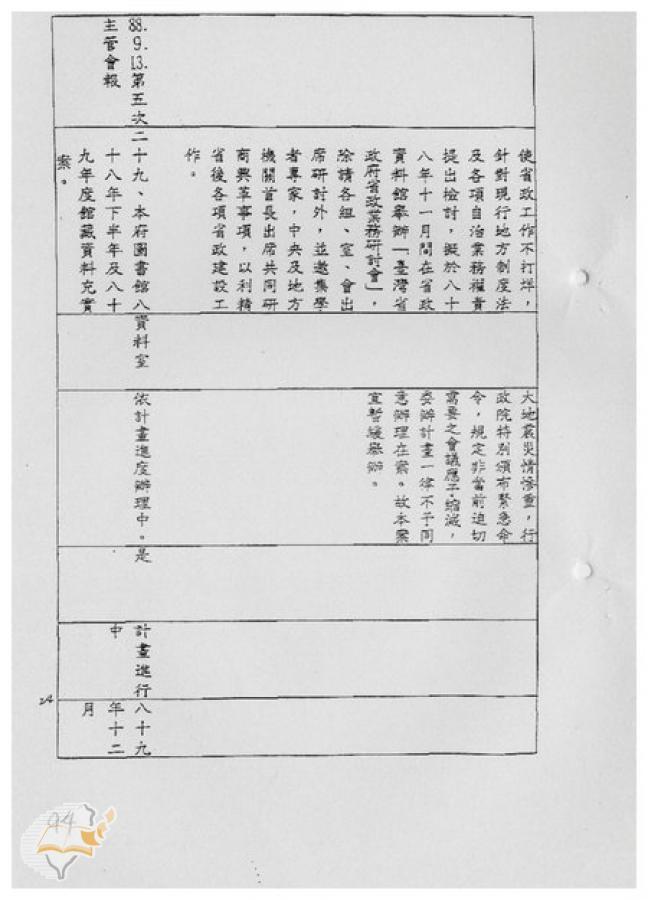 使省政工作不打烊，
針對現行地方制度法
及各項自治業務權責
提出檢討，擬於八十
八年十一月間在省政
資料館舉辦「臺灣省
政府省政業務研討會」，
除請各組、室、會出
席研討外，並邀集學
者專家，中央及地方
機關首長出席共同研
商興革事項，以利精
省後各項省政建設工
作。
大地震災情慘重，行
政院特別頒布緊急命
令，規定非當前迫切
需要之會議應予縮減，
委辦計畫一律不予同
意辦理在案。故本案
宜暫緩舉辦。
88.9.13.第五次
主管會報
二十九、本府圖書館八
十八年下半年及八十
九年度館藏資料充實
案。
資料室
依計畫進度辦理中。
是
計畫進行
中
八十九
年十二
月
24
94